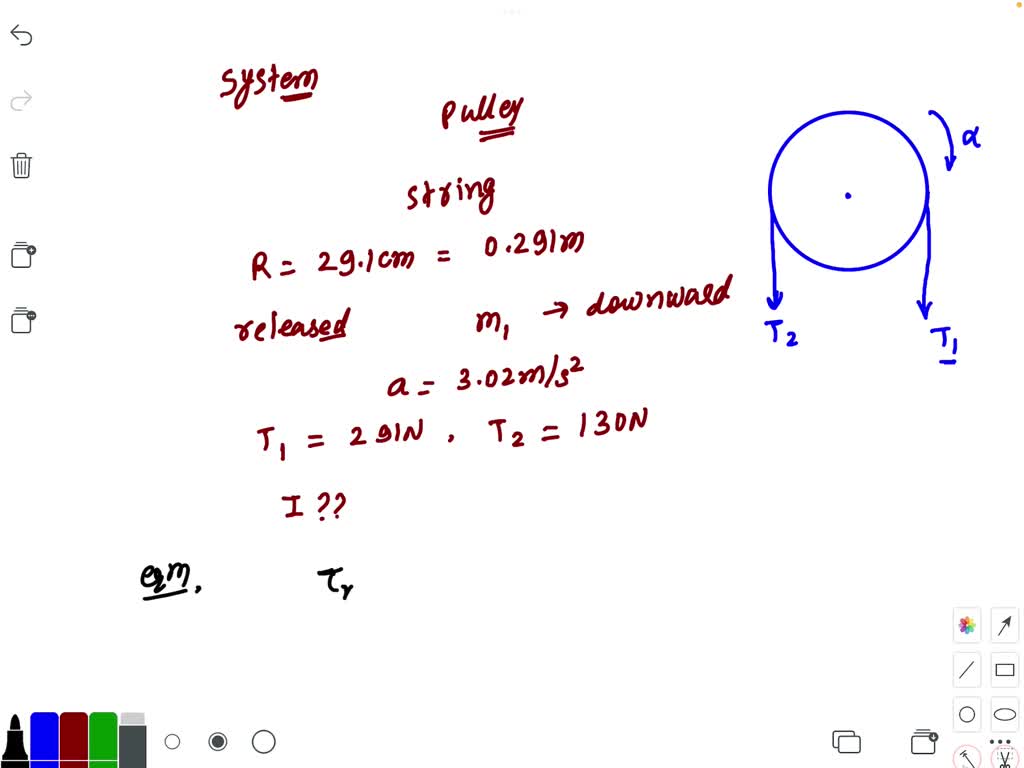 System
Pulley
string
R = 29.1cm = 0.291m
released m₁ → downward
a = 3.02m/s²
T₁ = 291N , T₂ = 130N
I ??
eqm, τᵣ
α
T₂
T₁